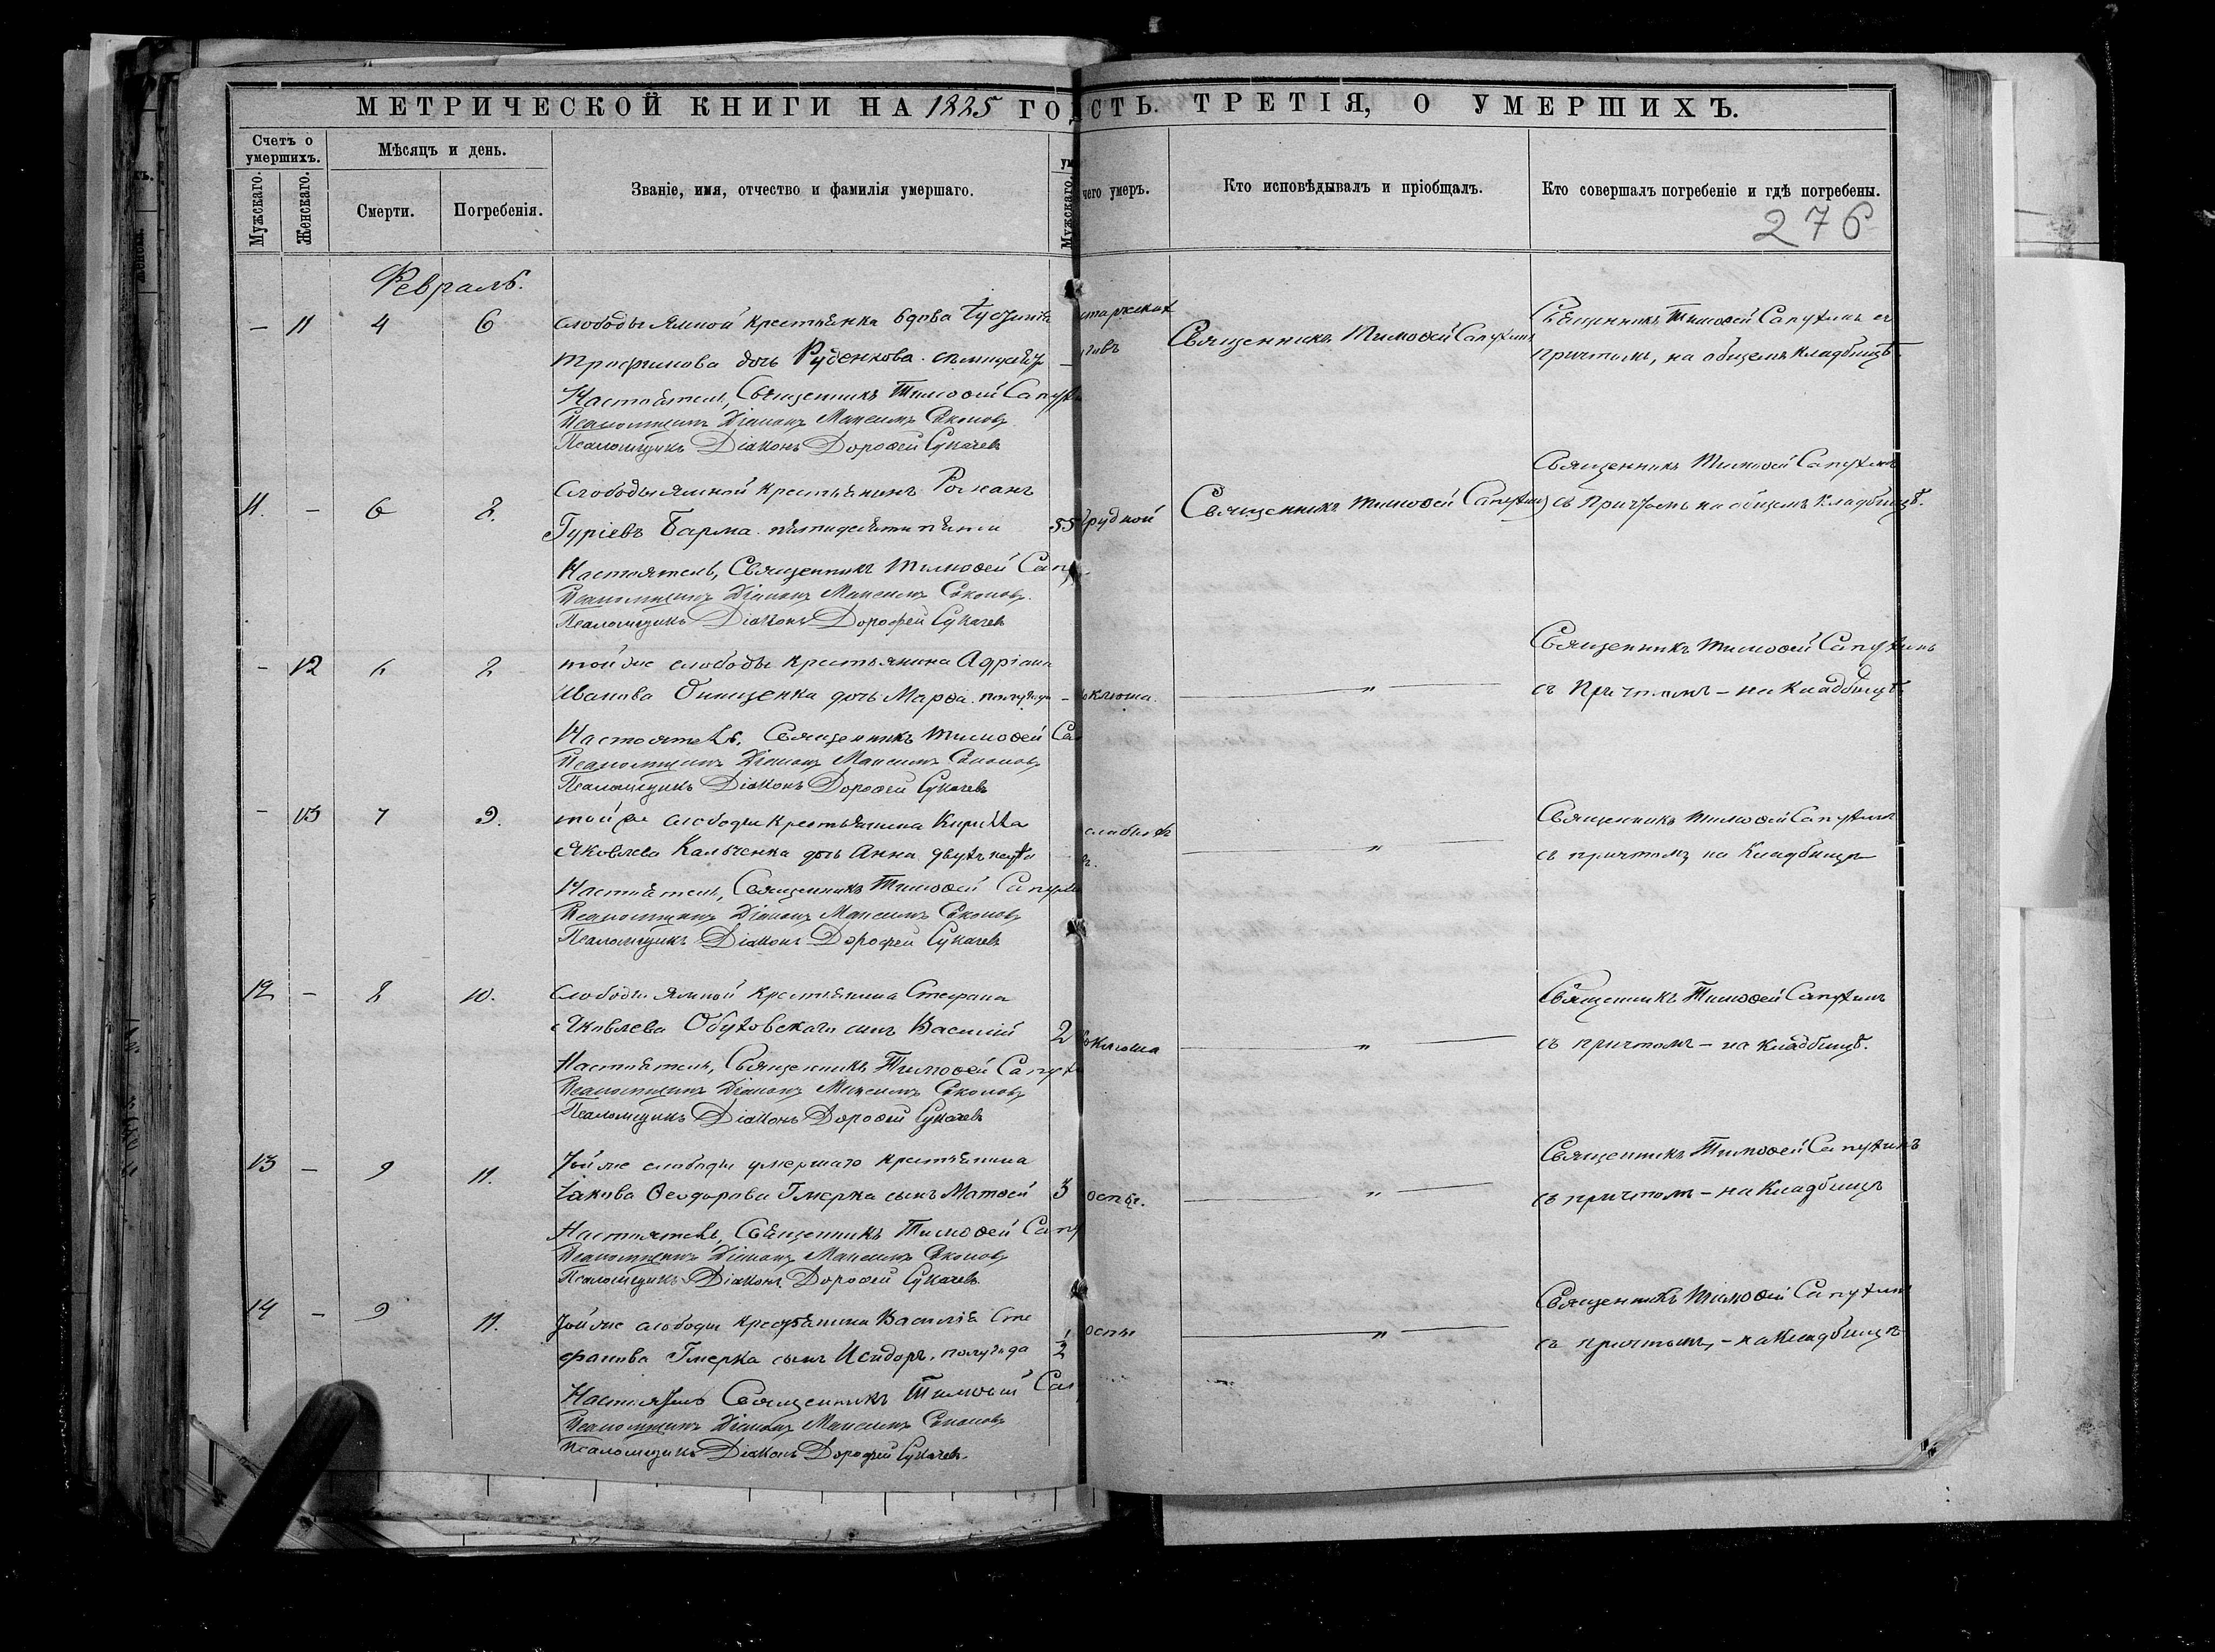 МЕТРИЧЕСКОЙ КНИГИ НА 1885 ГОД
СТЬ. ТРЕТІЯ, О УМЕРШИХЪ.
Счетъ о умершихъ.
Мужскаго.
Женскаго.
Мѣсяцъ и день.
Смерти.
Погребенія.
Званіе, имя, отчество и фамилія умершаго.
ум
Мужскаго.
чего умеръ.
Кто исповѣдывалъ и пріобщалъ.
Кто совершалъ погребеніе и гдѣ погребены.
276
Февраль.
— 11 4 6 слободы Ямной крестьянка вдова
Трофимова дочь Руденкова
Настоятель, Священникъ Тимоѳей Сапух
Псаломщикъ Діаконъ Максимъ
Псаломщикъ Діаконъ Дороѳей Сукачевъ
Священникъ Тимоѳей Сапухинъ
Священникъ Тимоѳей Сапухинъ съ
причтомъ, на общемъ кладбищѣ
11. — 6 8. Слободы Ямной крестьянинъ Романъ
Гуріевъ Барма. пятидесяти пяти 55
Настоятель, Священникъ Тимоѳей Сап
Псаломщикъ Діаконъ Максимъ
Псаломщикъ Діаконъ Дорофей Сукачев
грудной
Священникъ Тимоѳей Сапухинъ
Священникъ Тимоѳей Сапухинъ
съ Причтомъ на общемъ кладбищѣ.
— 12 6 8 той же слободы крестьянина Адріана
Иванова Онищенка дочь Марѳа.
Настоятель, Священникъ Тимоѳей Са
Псаломщикъ Діаконъ Максимъ
Псаломщикъ Діаконъ Дороѳей Сукачевъ
оклюша.
— „ —
Священникъ Тимоѳей Сапухинъ
съ Причтомъ – на кладбищѣ
- 13 7 9. той же слободы крестьянина Кирилла
Яковлева Кальченка дочь Анна двухъ
Настоятель, Священникъ Тимоѳей Сапухи
Псаломщикъ Діаконъ Максимъ
Псаломщикъ Діаконъ Дорофей Сукачев
— „ —
Священникъ Тимоѳей Сапухинъ
съ причтомъ на Кладбищѣ
12 — 8 10. Слободы Ямной крестьянина Стефана
Яковлева Обуховскаго сынъ Василій 2
Настоятель, Священникъ Тимоѳей Сапух
Псаломщикъ Діаконъ Максимъ
Псаломщикъ Діаконъ Дороѳей Сукачевъ
оклюша
— „ —
Священникъ Тимоѳей Сапухинъ
съ причтомъ – на кладбищѣ.
13 — 9 11. Той же слободы умершаго крестьянина
Іакова Ѳеодорова Гмерка сынъ Матѳей 3
Настоятель, Священникъ Тимоѳей Сапу
Псаломщикъ Діаконъ Максимъ
Псаломщикъ Діаконъ Дороѳей Сукачевъ
оспы.
— „ —
Священникъ Тимоѳей Сапухинъ
съ причтомъ – на Кладбищѣ
14 — 9 11. Той же слободы крестьянина Василія Сте
фанова Гмерка сынъ Исидоръ, полугода 1/2
Настоятель Священникъ Тимоѳей Сап
Псаломщикъ Діаконъ Максимъ
Псаломщикъ Діаконъ Дорофей Сукачевъ.
оспы
— „ —
Священникъ Тимоѳей Сапухинъ
съ причтомъ, – на Кладбищѣ